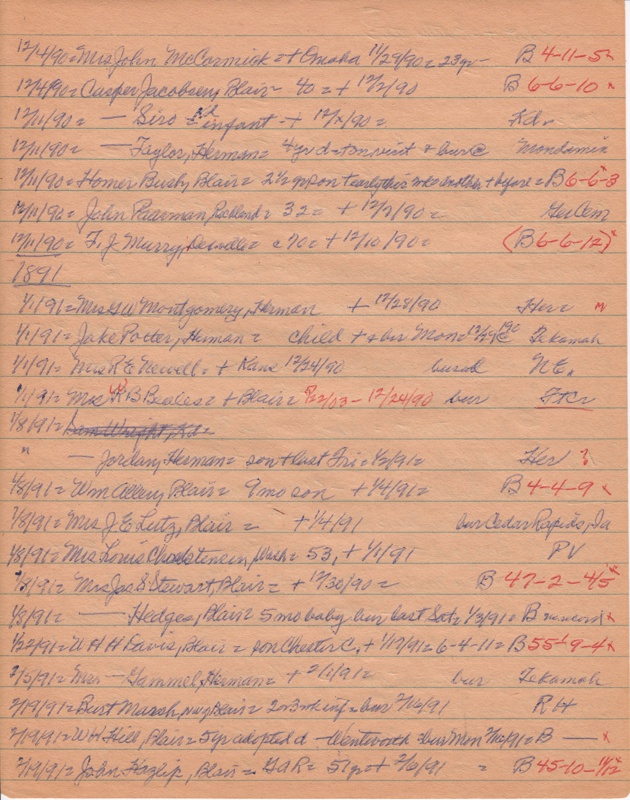 12/4/90= Mrs John McCormick = + Omaha 11/29/90= 23yr - B 4-11-5 x
12/4/90= Casper Jacobsen, Blair - 40 = + 12/2/90 B 6-6-10 x
12/11/90= — Siro = infant + 12/x/90= Kd.
12/11/90= — Taylor, Herman = 4yr d = + on visit + bur @ Mondamin
12/11/90= Homer Busby Blair = 2½ yr son + early this wk another + before = B 6-6-8 x
12/11/90= John Paarman, Richland = 32 = + 12/7/90 = Ger Cem
12/11/90= F. J. Murry, Desoto = c 70 = + 12/10/90= (B 6-6-12) x
1891
1/1/91= Mrs GW Montgomery, Herman + 12/28/90 Her =
1/1/91= Jake Porter, Herman = child + + bur Mon = 12/29 @ Tekamah
1/1/91= Mrs R E Newell = + Kans 12/24/90 burial NE.
1/1/91= Mrs B Beales = + Blair = 8/22/03 - 12/24/90 bur
1/8/91= Sam Wright, Kd.
" — Jordan, Herman = son + last Fri = 1/2/91= Her ?
1/8/91= Wm Allen, Blair = 9 mo son + 1/4/91= B 4-4-9 x
1/8/91= Mrs J E Lutz, Blair = + 1/4/91 bur Cedar Rapids, Ia
1/8/91= Mrs Louis Christensen, = 53, + 1/1/91 PV
1/8/91= Mrs Jas S Stewart, Blair = + 12/30/90 = B 47-2-45 x
1/8/91= — Hedges, Blair = 5 mo baby bur last Sat = 1/3/91= B x
1/22/91= W H H Davis, Blair = son Chester C. + 1/17/91= 6-4-11= B 55-9-4 x
2/5/91= Mrs — Gammel, Herman = + 2/1/91= bur Tekamah
2/19/91= Burt Marsh, Blair = 2 or 3 wk inf = bur 2/16/91 RH
2/19/91= WH Hill, Blair = 5yr adopted d - Wentworth bur Mon 2/16/91= B — x
2/19/91= John Hazlip, Blair = GAR = 51yr + 2/6/91 = B 45-10-11/12